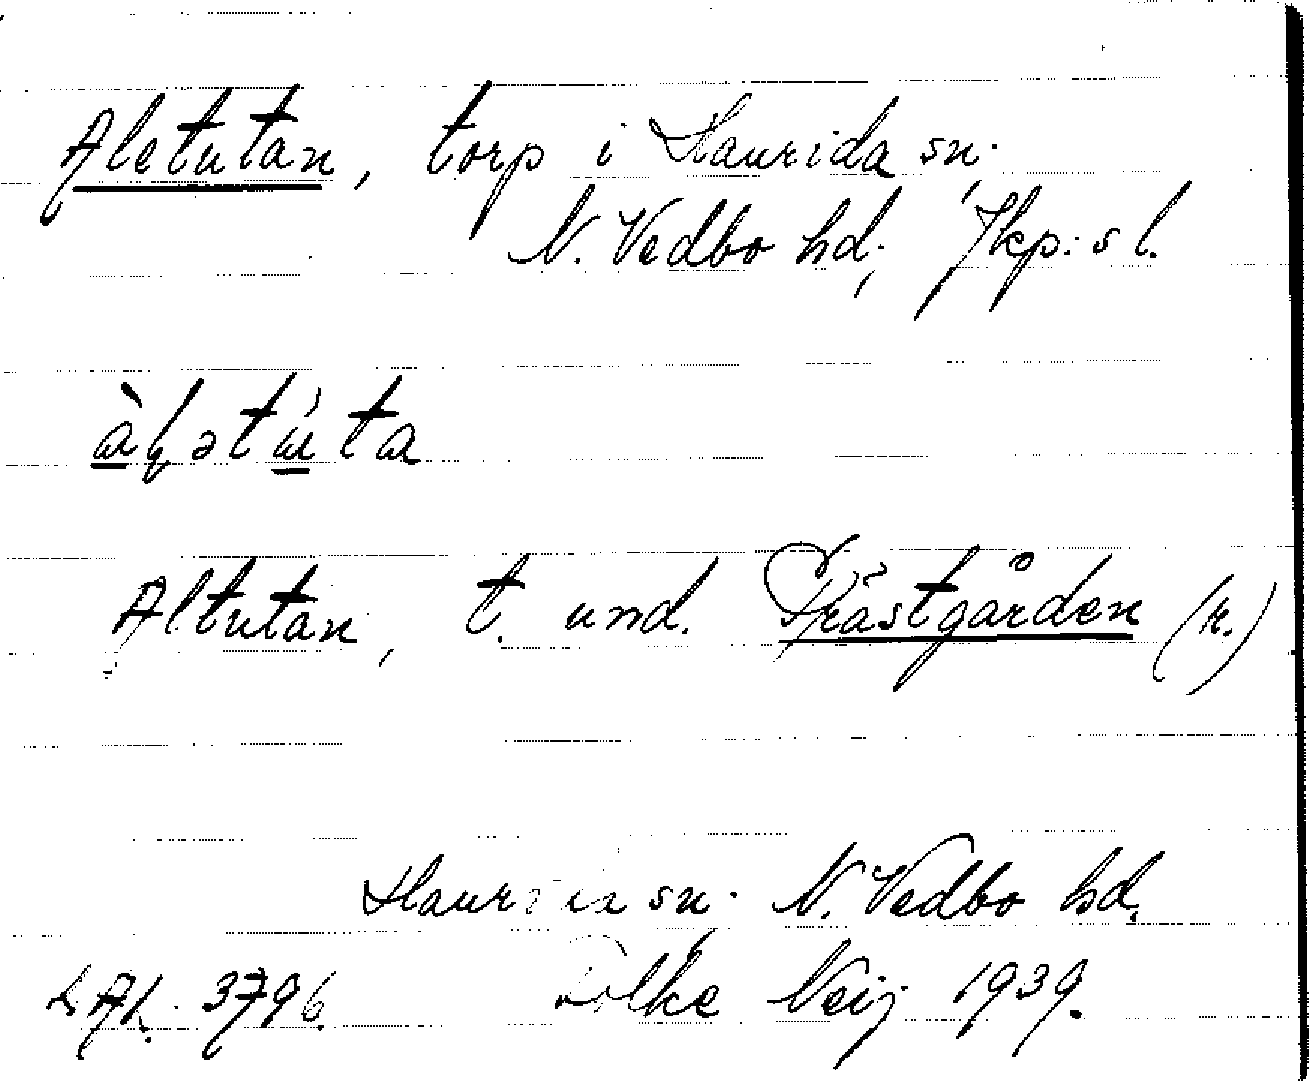 Aletutan, torp i Haurida sn.
N. Vedbo hd; Jkp:s l.
àḷətúta
Altutan, t. und. Prästgården (k.)
Haurida sn. N. Vedbo hd.
3796. Folke Neij 1939.